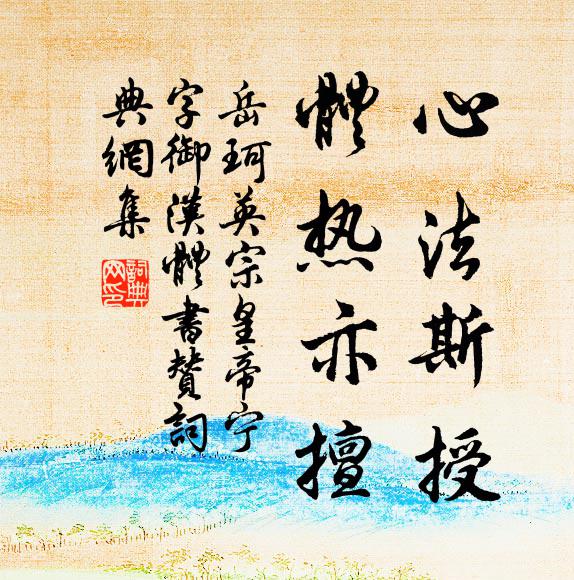 心法斯授
體热亦擅
岳珂英宗皇帝宁
字御漢體書贊詞
典網集
詞典
网印